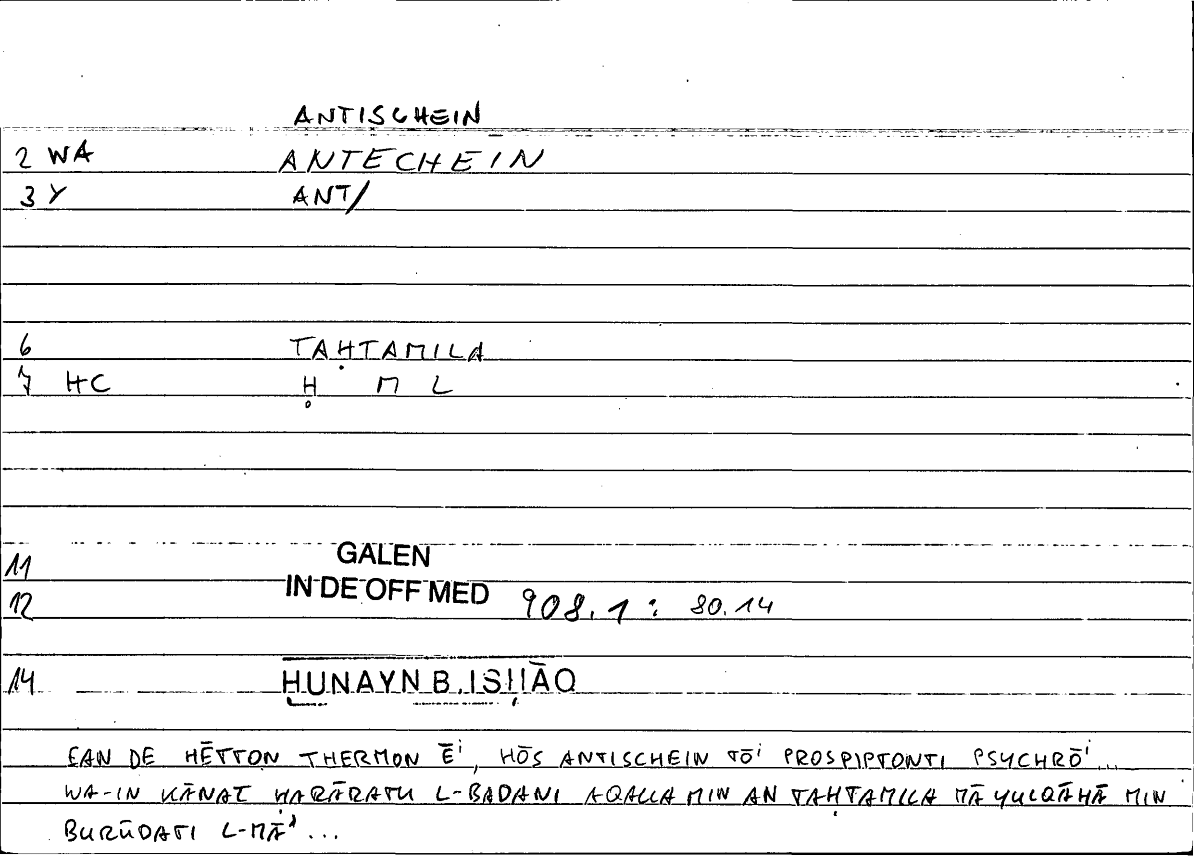 ANTISCHEIN
2 WA ANTECHEIN
3 Y ANT/
6 TAḤTAMILA
7 HC Ḥ M L
11 GALEN
12 IN DE OFF MED 908.1 : 80.14
14 ḤUNAYN B. ISḤĀQ
EAN DE HĒTTON THERMON Ēⁱ, HŌS ANTISCHEIN TŌⁱ PROSPIPTONTI PSYCHRŌⁱ...
WA-IN KĀNAT ḤARĀRATU L-BADANI AQALLA MIN AN TAḤTAMILA MĀ YULQĀHĀ MIN
BURŪDATI L-MĀʾ ...